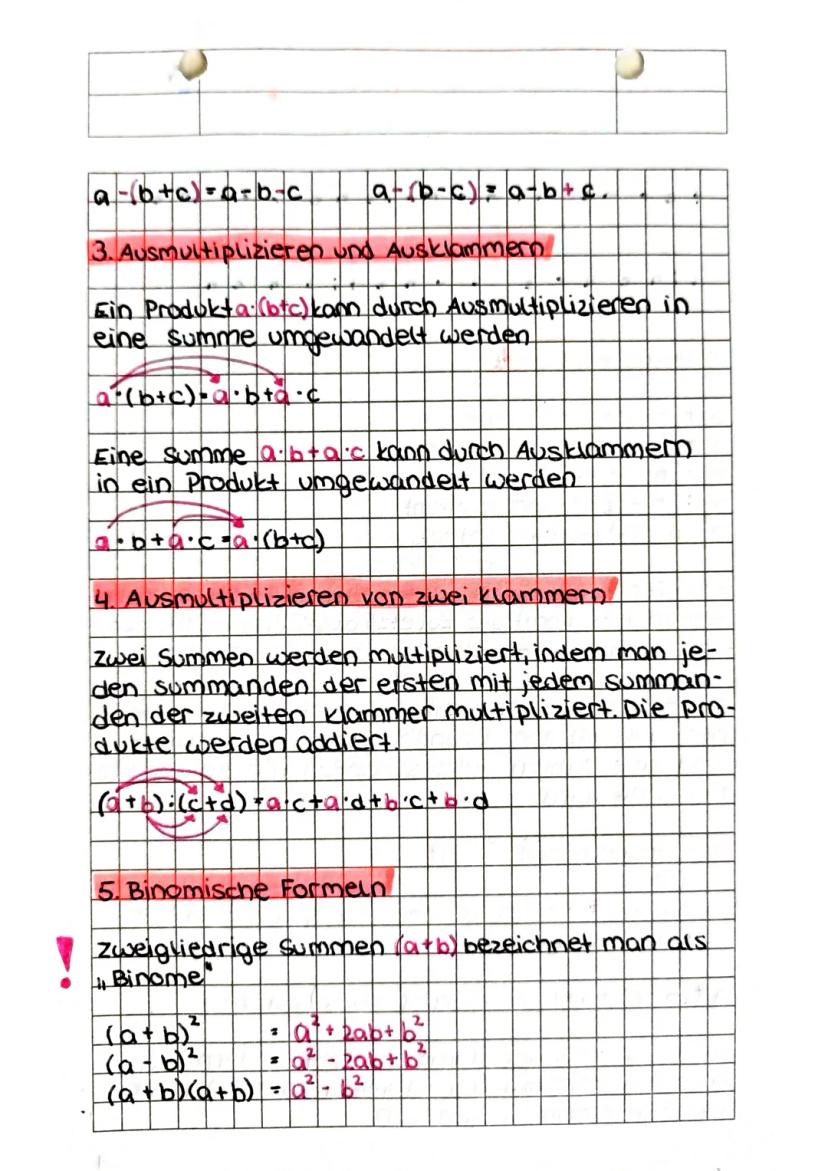 a-(b+c)=a-b-c a-(b-c)=a-b+c.
3. Ausmultiplizieren und Ausklammern
Ein Produkt a·(b+c) kann durch Ausmultiplizieren in
eine summe umgewandelt werden
a·(b+c)=a·b+a·c
Eine summe a·b+a·c kann durch Ausklammern
in ein Produkt umgewandelt werden
a·b+a·c=a·(b+c)
4. Ausmultiplizieren von zwei klammern
Zwei Summen werden multipliziert, indem man je-
den summanden der ersten mit jedem summan-
den der zweiten klammer multipliziert. Die Pro-
dukte werden addiert.
(a+b)·(c+d)=a·c+a·d+b·c+b·d
5. Binomische Formeln
! Zweigliedrige summen (a+b) bezeichnet man als
„Binome"
(a+b)² = a²+2ab+b²
(a-b)² = a²-2ab+b²
(a+b)(a+b) = a²-b²